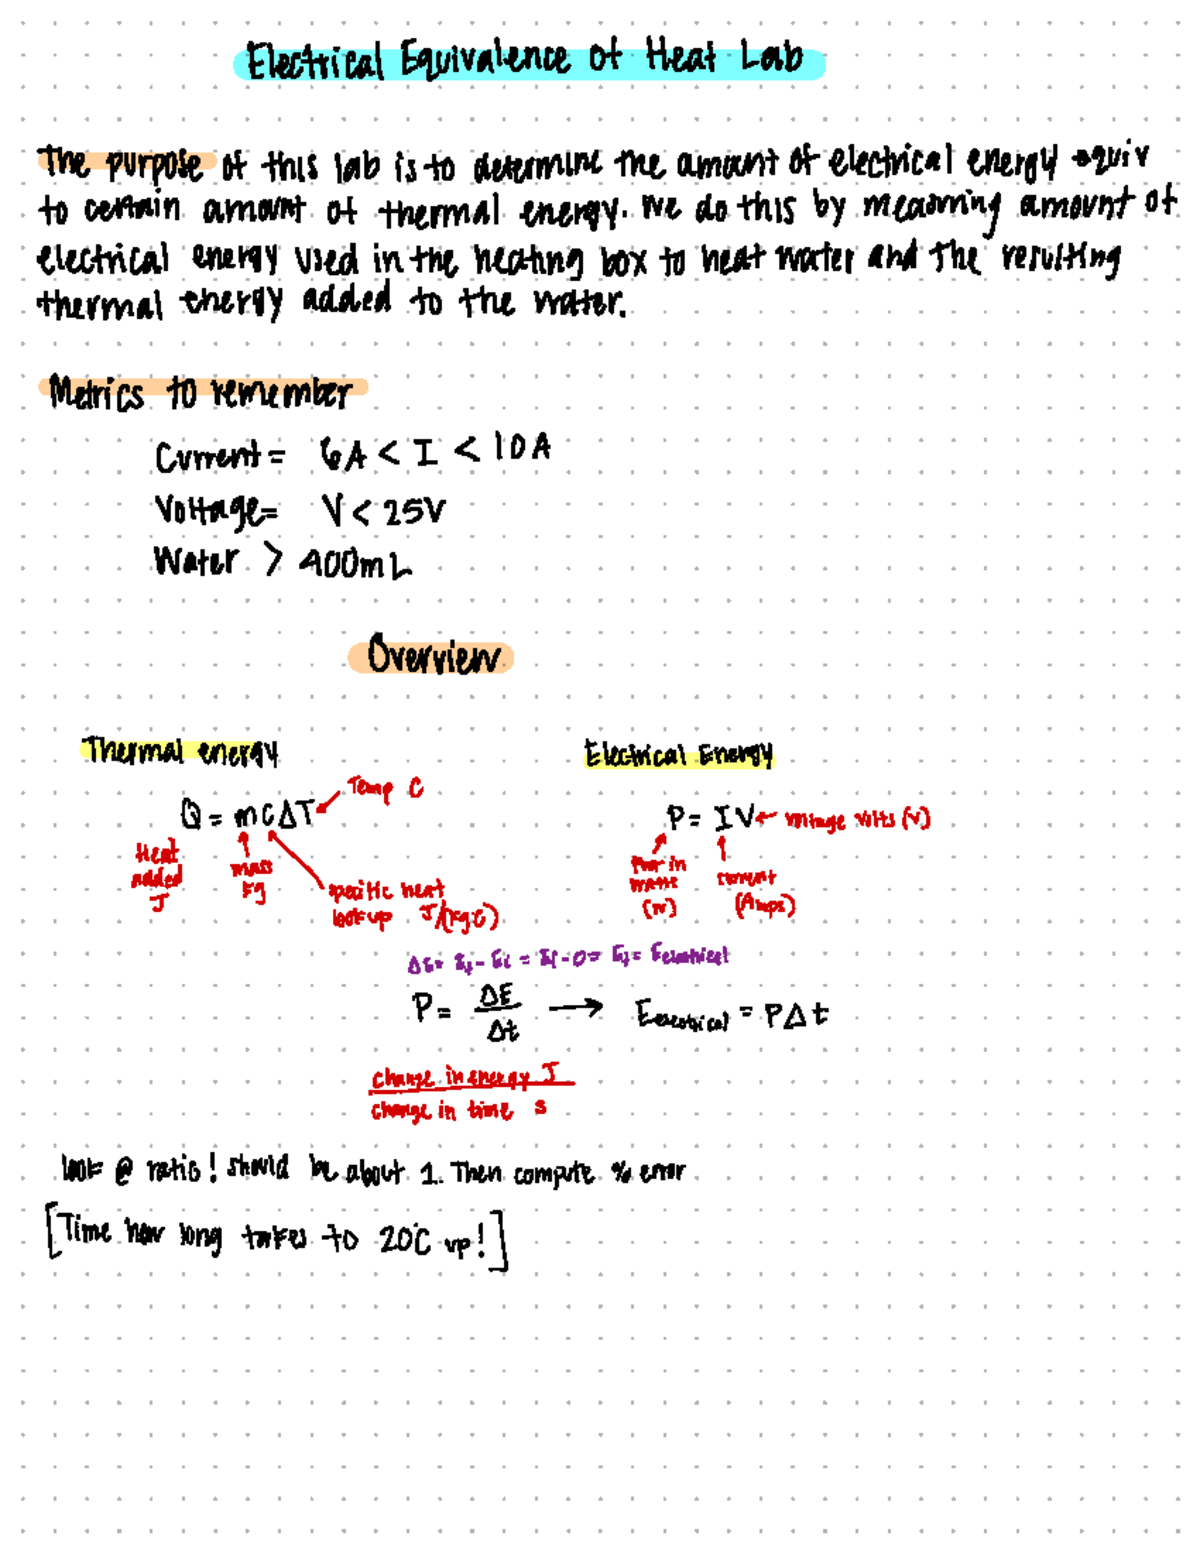 Electrical Equivalence of Heat Lab
The purpose of this lab is to determine the amount of electrical energy equiv
to certain amount of thermal energy. We do this by measuring amount of
electrical energy used in the heating box to heat water and the resulting
thermal energy added to the water.
Metrics to remember
Current = 6A < I < 10A
Voltage = V < 25V
Water > 400mL
Overview
Thermal energy
Electrical Energy
Temp C
Q = mCΔT
P = IV
voltage volts (V)
Heat
added
J
mass
kg
specific heat
look up J/(kg·C)
Power in
watts
(W)
current
(Amps)
ΔE = Ef - Ei = Ef - 0 = Ef = Eelectrical
P = ΔE/Δt → Eelectrical = PΔt
change in energy J
change in time s
look @ ratio! should be about 1. Then compute % error
[Time how long takes to 20°C up!]